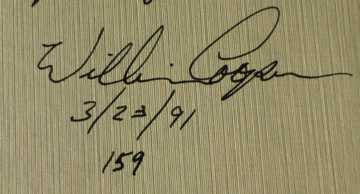 William Cooper
3/23/91
159